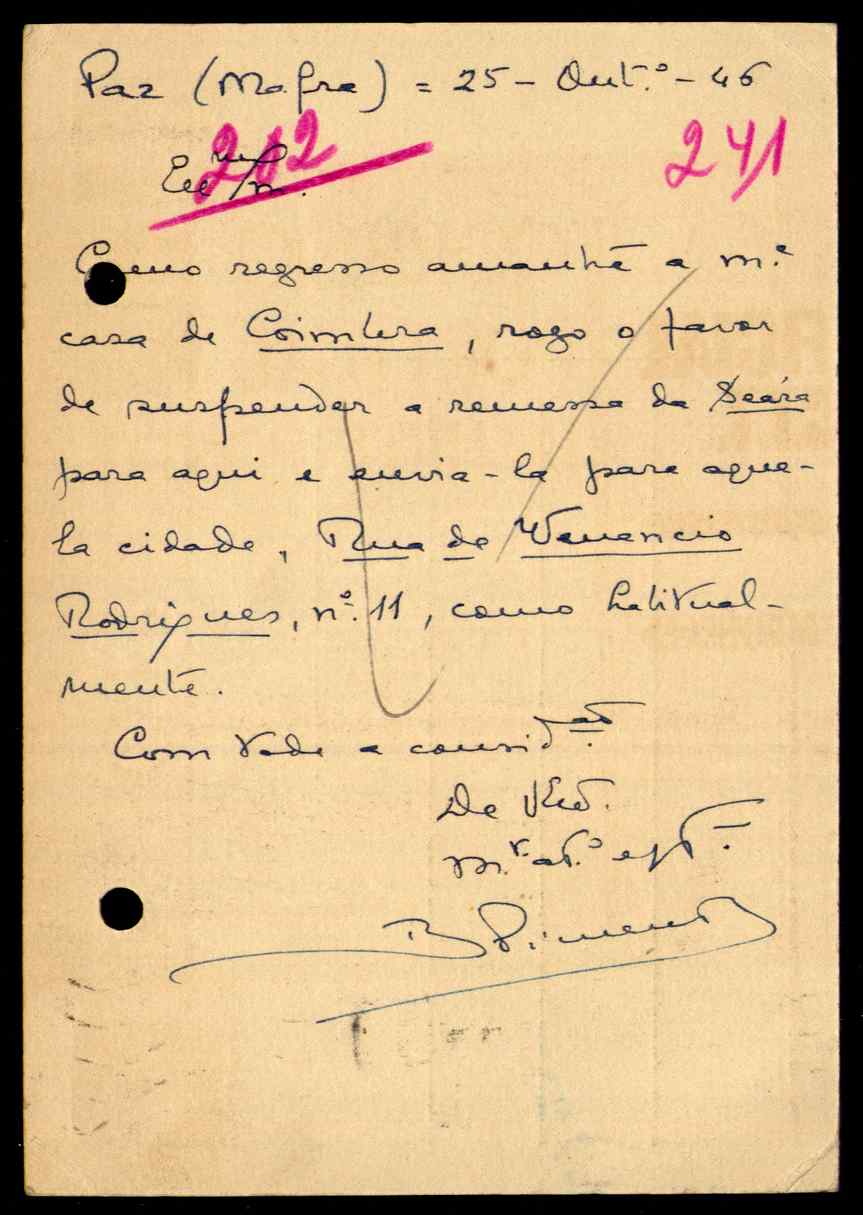 Paz (Mafra) = 25 - Out.º - 46
202
241
Como regresso amanhã a m.ª
casa de Coimbra, rogo o favor
de suspender a remessa da Seára
para aqui e envia-la para aque-
la cidade, Rua de Venancio
Rodrigues, nº. 11, como habitual-
mente.
Com toda a consid.ão
De V.
m.to at.º e
B Pimenta